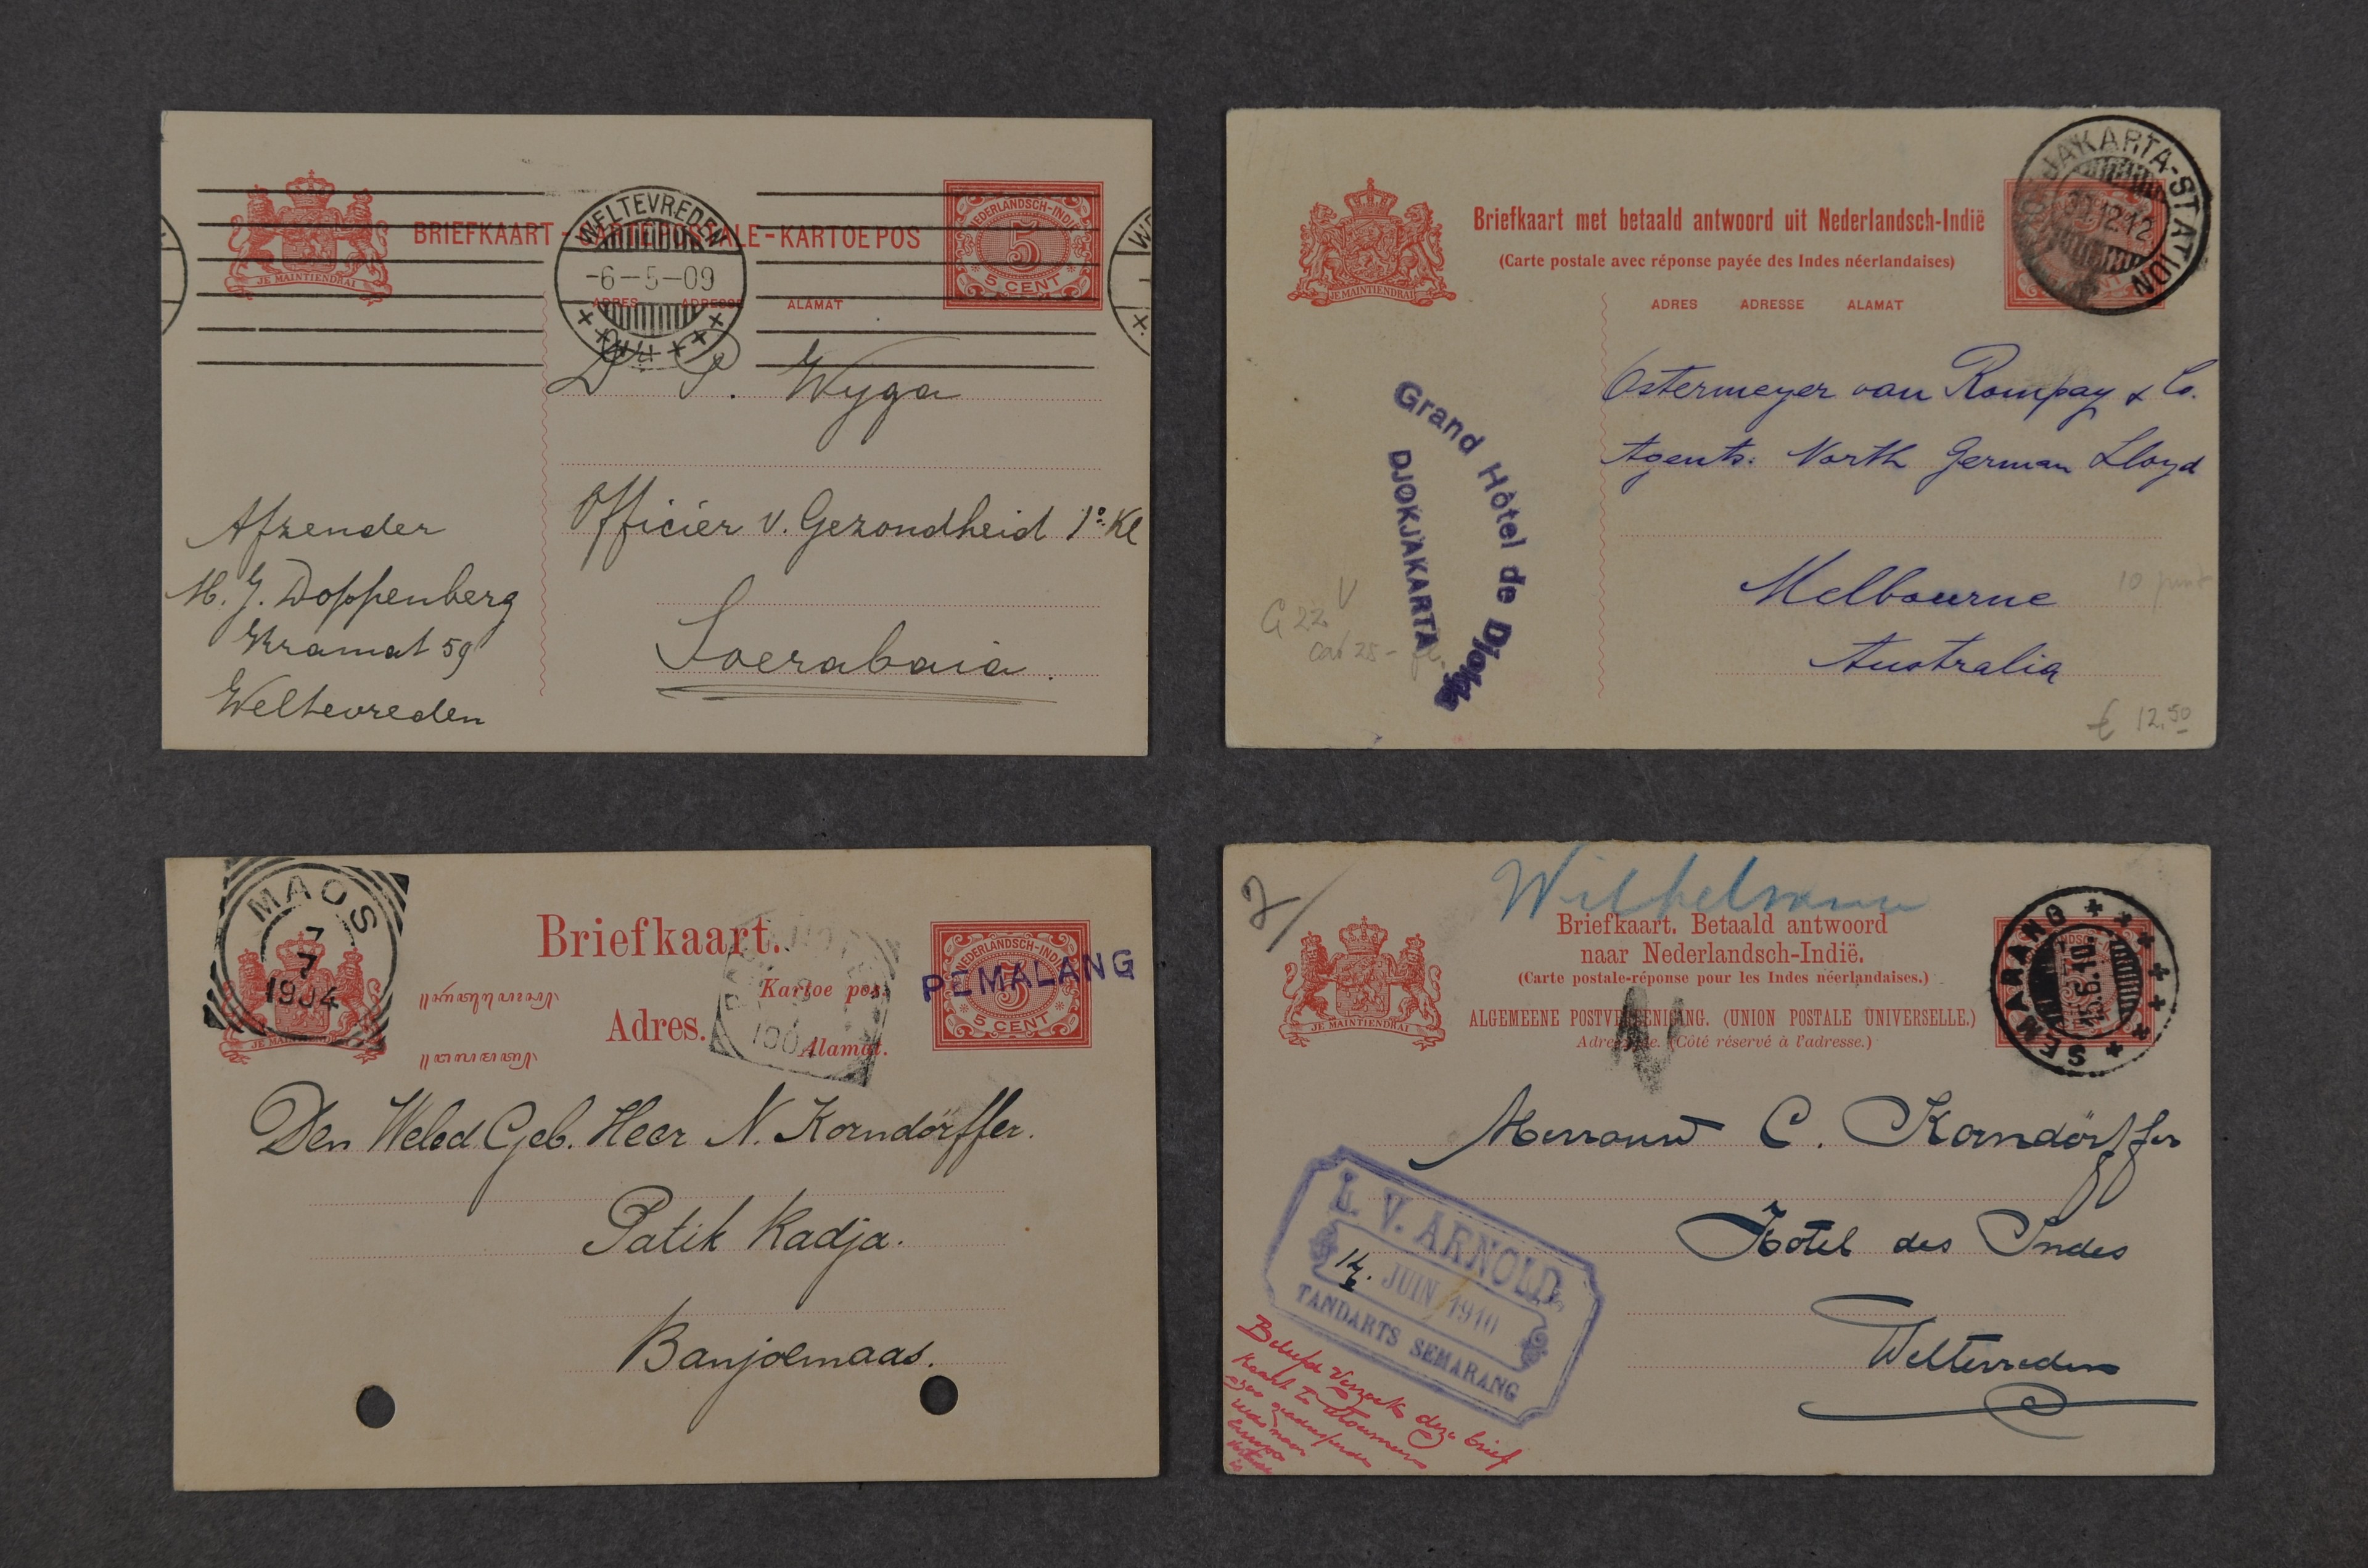 BRIEFKAART - CARTE POSTALE - KARTOE POS
WELTEVREDEN
-6-5-09
NEDERLANDSCH-INDIË
5
5 CENT
JE MAINTIENDRAI
ADRES ADRESSE ALAMAT
D. P. Wyga
Officier v. Gezondheid 1e Kl
Soerabaia.
Afzender
H. J. Doppenberg
Kramat 59
Weltevreden
Briefkaart met betaald antwoord uit Nederlandsch-Indië
(Carte postale avec réponse payée des Indes néerlandaises)
JE MAINTIENDRAI
ADRES ADRESSE ALAMAT
DJOKJAKARTA-STATION
12.12
Ostermeyer van Rompay & Co.
Agents: North German Lloyd
Melbourne
Australia
Grand Hôtel de Djokja
DJOKJAKARTA
G 22 V
cat 25-
10
€ 12.50
MAOS
7
7
1904
JE MAINTIENDRAI
Briefkaart.
Kartoe pos.
Adres.
Alamat.
NEDERLANDSCH-INDIË
5
5 CENT
PEMALANG
Den Weled Geb. Heer N. Korndörffer.
Patik Kadja.
Banjoemaas.
2/
Wilhelmina
Briefkaart. Betaald antwoord
naar Nederlandsch-Indië.
(Carte postale-réponse pour les Indes néerlandaises.)
ALGEMEENE POSTVEREENIGING. (UNION POSTALE UNIVERSELLE.)
Adreszijde. (Côté réservé à l'adresse.)
JE MAINTIENDRAI
SEMARANG
15.6.10.
Mevrouw C. Korndörffer
Hotel des Indes
Weltevreden
L. V. ARNOLD.
14. JUIN 1910
TANDARTS SEMARANG
Beleefd verzoek deze brief
kaart
naar
Europa
is